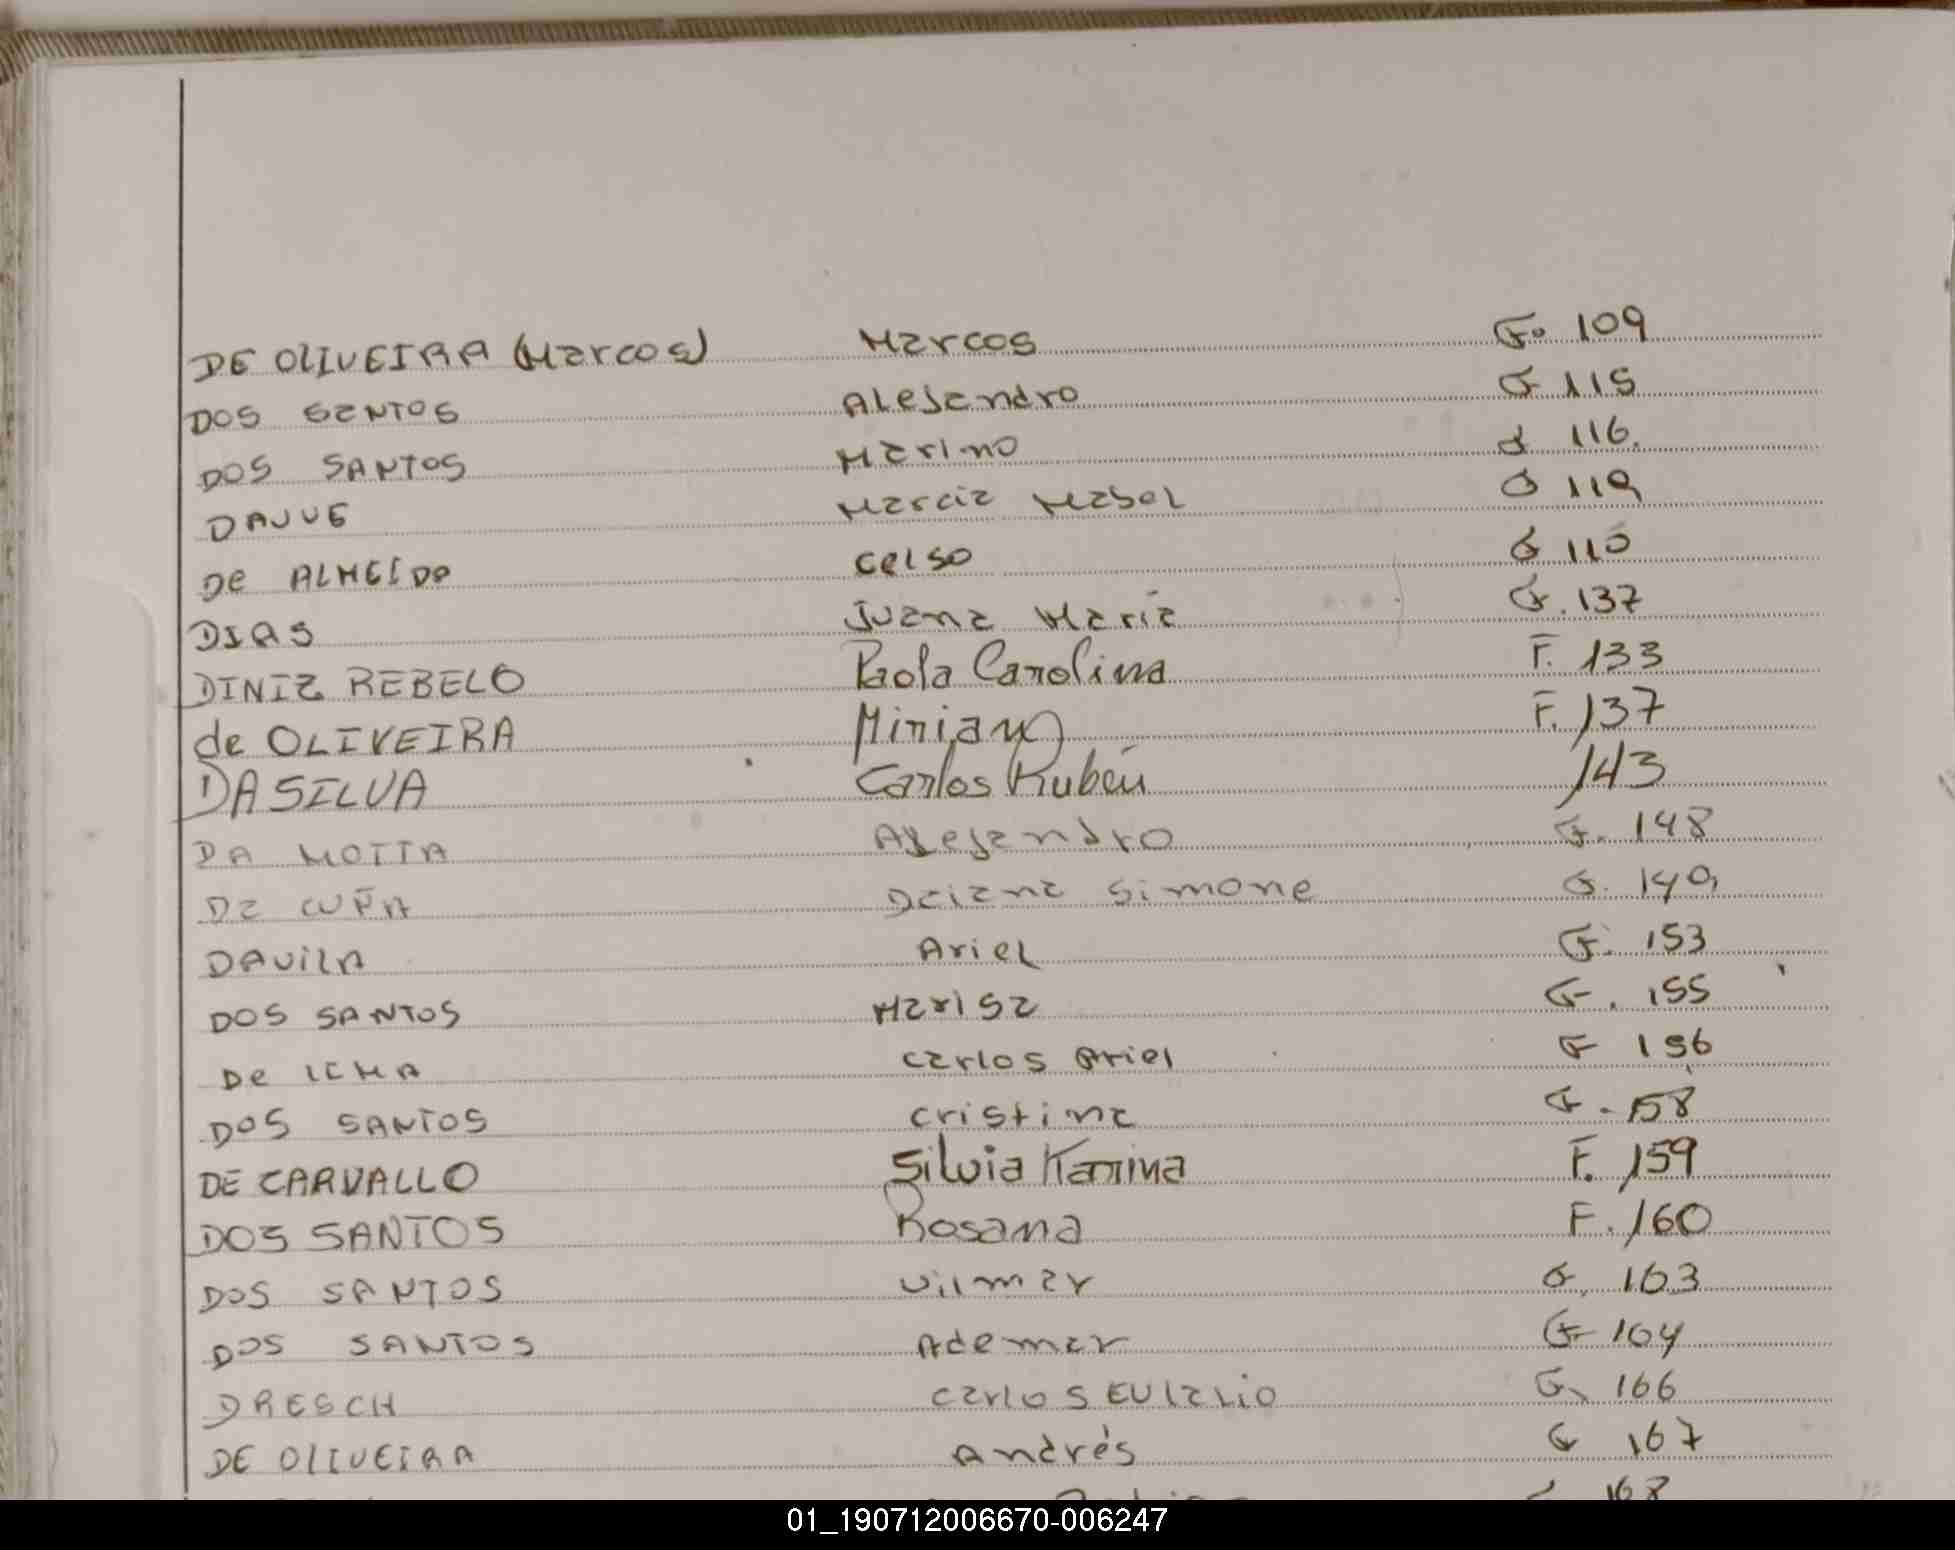 DE OLIVEIRA (Marcos) Marcos F. 109
DOS SANTOS Alejandro F 115
DOS SANTOS Marino F 116.
DAJUE Marcia Mabel F 119
De ALMEIDA Celso F 110
DIAS Juana María F. 137
DINIZ REBELO Paola Carolina F. 133
de OLIVEIRA Mirian F. 137
DA SILVA Carlos Rubén 143
DA MOTTA Alejandro F. 148
Da CUÑA Daiana Simone F. 149
DAVILA Ariel F. 153
DOS SANTOS Marisa F. 155
De LIMA Carlos Ariel F 156
DOS SANTOS Cristina F. 158
DE CARVALLO Silvia Karina F. 159
DOS SANTOS Rosana F. 160
DOS SANTOS Vilmar F. 163
DOS SANTOS Ademar F 164
DRESCH Carlos Eulalio F. 166
DE OLIVEIRA Andrés F 167
168
01_190712006670-006247